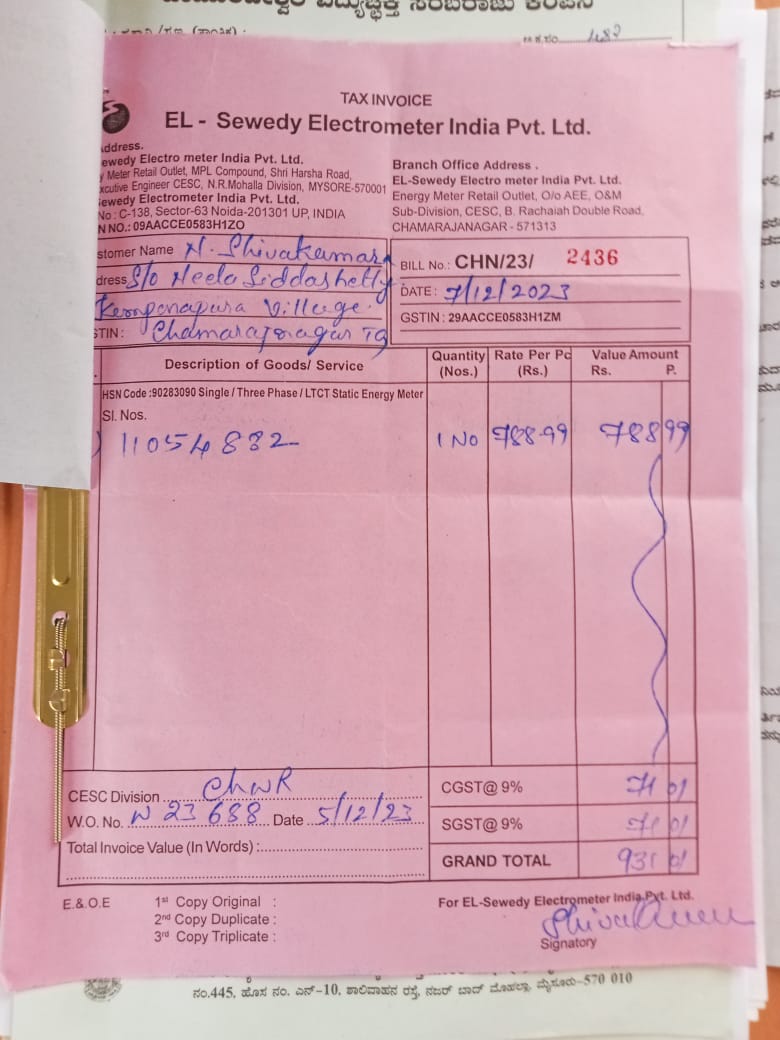 ವಿದ್ಯುಚ್ಛಕ್ತಿ ಸರಬರಾಜು ಕಂಪನಿ
482
TAX INVOICE
EL - Sewedy Electrometer India Pvt. Ltd.
ddress.
ewedy Electro meter India Pvt. Ltd.
y Meter Retail Outlet, MPL Compound, Shri Harsha Road,
xcutive Engineer CESC, N.R.Mohalla Division, MYSORE-570001
ewedy Electrometer India Pvt. Ltd.
No : C-138, Sector-63 Noida-201301 UP, INDIA
N NO.: 09AACCE0583H1ZO
Branch Office Address .
EL-Sewedy Electro meter India Pvt. Ltd.
Energy Meter Retail Outlet, O/o AEE, O&M
Sub-Division, CESC, B. Rachaiah Double Road,
CHAMARAJANAGAR - 571313
stomer Name N. Shivakumara
dress S/o Neela Siddashetty
Kempanapura Village.
STIN: Chamarajanagar TQ
BILL No.: CHN/23/ 2436
DATE: 7/12/2023
GSTIN : 29AACCE0583H1ZM
Description of Goods/ Service Quantity (Nos.) Rate Per Pc (Rs.) Value Amount Rs. P.
HSN Code :90283090 Single / Three Phase / LTCT Static Energy Meter
Sl. Nos.
) 11054882 1 No 788-99 788 99
CESC Division ChNR CGST@ 9% 71 01
W.O. No. N 23688 Date 5/12/23 SGST@ 9% 71 01
Total Invoice Value (In Words) : GRAND TOTAL 931 01
E.& O.E 1st Copy Original :
2nd Copy Duplicate :
3rd Copy Triplicate :
For EL-Sewedy Electrometer India Pvt. Ltd.
Signatory
ನಂ.445, ಹೊಸ ನಂ. ಎನ್-10, ಶಾಲಿವಾಹನ ರಸ್ತೆ, ನಜರ್ ಬಾದ್ ಮೊಹಲ್ಲಾ, ಮೈಸೂರು-570 010